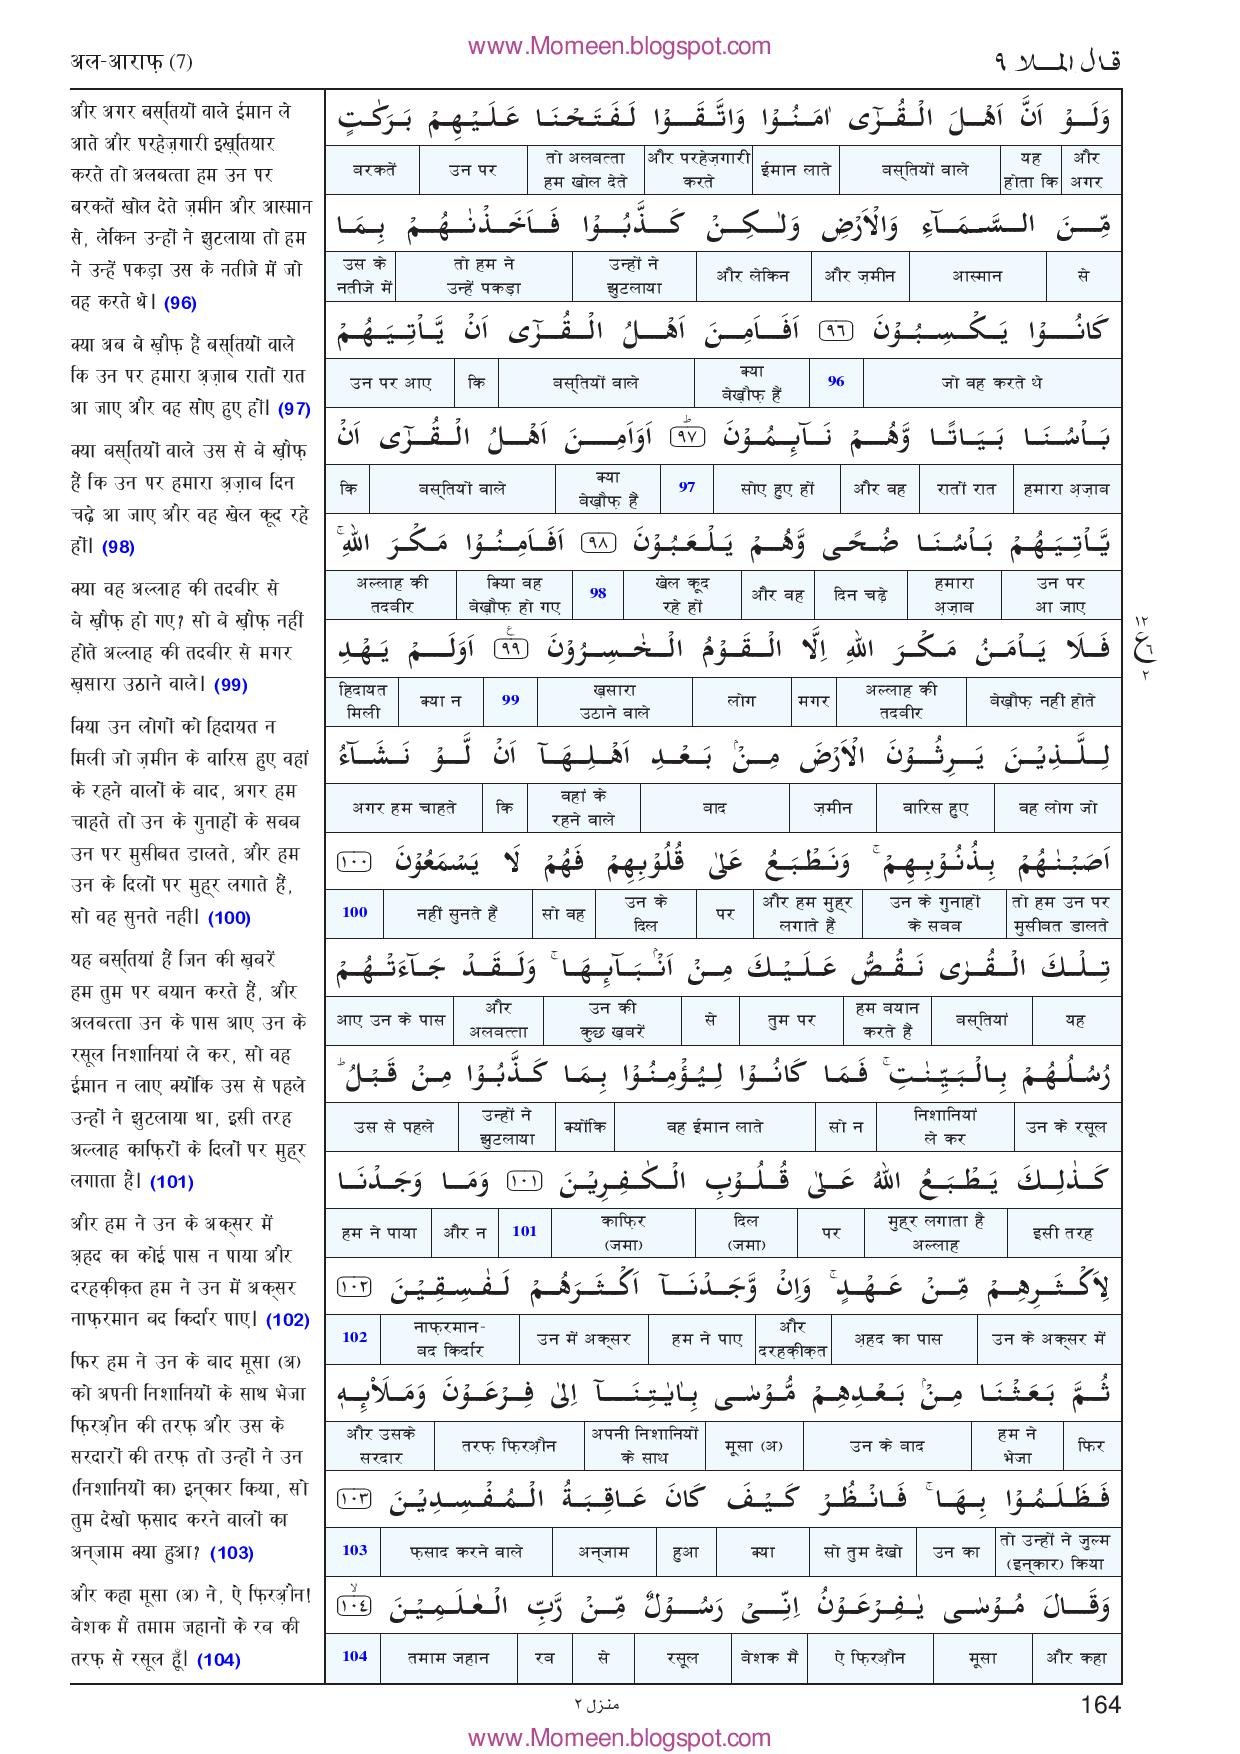 www.Momeen.blogspot.com
अल-आराफ़ (7)
قال الملا ٩
और अगर बस्तियों वाले ईमान ले
आते और परहेज़गारी इख़्तियार
करते तो अलबत्ता हम उन पर
बरकतें खोल देते ज़मीन और आस्मान
से, लेकिन उन्हों ने झुटलाया तो हम
ने उन्हें पकड़ा उस के नतीजे में जो
वह करते थे। (96)
क्या अब बे ख़ौफ़ हैं बस्तियों वाले
कि उन पर हमारा अ़ज़ाब रातों रात
आ जाए और वह सोए हुए हों। (97)
क्या बस्तियों वाले उस से बे ख़ौफ़
हैं कि उन पर हमारा अ़ज़ाब दिन
चढ़े आ जाए और वह खेल कूद रहे
हों। (98)
क्या वह अल्लाह की तदबीर से
बे ख़ौफ़ हो गए? सो बे ख़ौफ़ नहीं
होते अल्लाह की तदबीर से मगर
ख़सारा उठाने वाले। (99)
क्या उन लोगों को हिदायत न
मिली जो ज़मीन के वारिस हुए वहां
के रहने वालों के बाद, अगर हम
चाहते तो उन के गुनाहों के सबब
उन पर मुसीबत डालते, और हम
उन के दिलों पर मुहर लगाते हैं,
सो वह सुनते नहीं। (100)
यह बस्तियां हैं जिन की ख़बरें
हम तुम पर बयान करते हैं, और
अलबत्ता उन के पास आए उन के
रसूल निशानियां ले कर, सो वह
ईमान न लाए क्योंकि उस से पहले
उन्हों ने झुटलाया था, इसी तरह
अल्लाह काफ़िरों के दिलों पर मुहर
लगाता है। (101)
और हम ने उन के अक्सर में
अ़हद का कोई पास न पाया और
दरहक़ीक़त हम ने उन में अक्सर
नाफ़रमान बद किर्दार पाए। (102)
फिर हम ने उन के बाद मूसा (अ)
को अपनी निशानियों के साथ भेजा
फ़िरऔ़न की तरफ़ और उस के
सरदारों की तरफ़ तो उन्हों ने उन
(निशानियों का) इन्कार किया, सो
तुम देखो फ़साद करने वालों का
अन्जाम क्या हुआ? (103)
और कहा मूसा (अ) ने, ऐ फ़िरऔ़न!
बेशक मैं तमाम जहानों के रब की
तरफ़ से रसूल हूँ। (104)
وَلَوْ اَنَّ اَهْلَ الْقُرٰٓى اٰمَنُوْا وَاتَّقَوْا لَفَتَحْنَا عَلَيْهِمْ بَرَكٰتٍ
बरकतें | उन पर | तो अलबत्ता हम खोल देते | और परहेज़गारी करते | ईमान लाते | बस्तियों वाले | यह होता कि | और अगर
مِّنَ السَّمَآءِ وَالْاَرْضِ وَلٰكِنْ كَذَّبُوْا فَاَخَذْنٰهُمْ بِمَا
उस के नतीजे में | तो हम ने उन्हें पकड़ा | उन्हों ने झुटलाया | और लेकिन | और ज़मीन | आस्मान | से
كَانُوْا يَكْسِبُوْنَ ٩٦ اَفَاَمِنَ اَهْلُ الْقُرٰٓى اَنْ يَّاْتِيَهُمْ
उन पर आए | कि | बस्तियों वाले | क्या बेख़ौफ़ हैं | 96 | जो वह करते थे
بَاْسُنَا بَيَاتًا وَّهُمْ نَآىِٕمُوْنَ ؕ ٩٧ اَوَاَمِنَ اَهْلُ الْقُرٰٓى اَنْ
कि | बस्तियों वाले | क्या बेख़ौफ़ हैं | 97 | सोए हुए हों | और वह | रातों रात | हमारा अ़ज़ाब
يَّاْتِيَهُمْ بَاْسُنَا ضُحًى وَّهُمْ يَلْعَبُوْنَ ٩٨ اَفَاَمِنُوْا مَكْرَ اللّٰهِ ۚ
अल्लाह की तदबीर | क्या वह बेख़ौफ़ हो गए | 98 | खेल कूद रहे हों | और वह | दिन चढ़े | हमारा अ़ज़ाब | उन पर आ जाए
فَلَا يَاْمَنُ مَكْرَ اللّٰهِ اِلَّا الْقَوْمُ الْخٰسِرُوْنَ ٩٩ ع اَوَلَمْ يَهْدِ
١٢ ع ٦ ٢
हिदायत मिली | क्या न | 99 | ख़सारा उठाने वाले | लोग | मगर | अल्लाह की तदबीर | बेख़ौफ़ नहीं होते
لِلَّذِيْنَ يَرِثُوْنَ الْاَرْضَ مِنْۢ بَعْدِ اَهْلِهَآ اَنْ لَّوْ نَشَآءُ
अगर हम चाहते | कि | वहां के रहने वाले | बाद | ज़मीन | वारिस हुए | वह लोग जो
اَصَبْنٰهُمْ بِذُنُوْبِهِمْ ۚ وَنَطْبَعُ عَلٰى قُلُوْبِهِمْ فَهُمْ لَا يَسْمَعُوْنَ ١٠٠
100 | नहीं सुनते हैं | सो वह | उन के दिल | पर | और हम मुहर लगाते हैं | उन के गुनाहों के सबब | तो हम उन पर मुसीबत डालते
تِلْكَ الْقُرٰى نَقُصُّ عَلَيْكَ مِنْ اَنْۢبَآىِٕهَا ۚ وَلَقَدْ جَآءَتْهُمْ
आए उन के पास | और अलबत्ता | उन की कुछ ख़बरें | से | तुम पर | हम बयान करते हैं | बस्तियां | यह
رُسُلُهُمْ بِالْبَيِّنٰتِ ۚ فَمَا كَانُوْا لِيُؤْمِنُوْا بِمَا كَذَّبُوْا مِنْ قَبْلُ ؕ
उस से पहले | उन्हों ने झुटलाया | क्योंकि | वह ईमान लाते | सो न | निशानियां ले कर | उन के रसूल
كَذٰلِكَ يَطْبَعُ اللّٰهُ عَلٰى قُلُوْبِ الْكٰفِرِيْنَ ١٠١ وَمَا وَجَدْنَا
हम ने पाया | और न | 101 | काफ़िर (जमा) | दिल (जमा) | पर | मुहर लगाता है अल्लाह | इसी तरह
لِاَكْثَرِهِمْ مِّنْ عَهْدٍ ۚ وَاِنْ وَّجَدْنَآ اَكْثَرَهُمْ لَفٰسِقِيْنَ ١٠٢
102 | नाफ़रमान-बद किर्दार | उन में अक्सर | हम ने पाए | और दरहक़ीक़त | अ़हद का पास | उन के अक्सर में
ثُمَّ بَعَثْنَا مِنْۢ بَعْدِهِمْ مُّوْسٰى بِاٰيٰتِنَآ اِلٰى فِرْعَوْنَ وَمَلَا۟ىِٕهٖ
और उसके सरदार | तरफ़ फ़िरऔ़न | अपनी निशानियों के साथ | मूसा (अ) | उन के बाद | हम ने भेजा | फिर
فَظَلَمُوْا بِهَا ۚ فَانْظُرْ كَيْفَ كَانَ عَاقِبَةُ الْمُفْسِدِيْنَ ١٠٣
103 | फ़साद करने वाले | अन्जाम | हुआ | क्या | सो तुम देखो | उन का | तो उन्हों ने जुल्म (इन्कार) किया
وَقَالَ مُوْسٰى يٰفِرْعَوْنُ اِنِّىْ رَسُوْلٌ مِّنْ رَّبِّ الْعٰلَمِيْنَ ۙ ١٠٤
104 | तमाम जहान | रब | से | रसूल | बेशक मैं | ऐ फ़िरऔ़न | मूसा | और कहा
منزل ٢
164
www.Momeen.blogspot.com